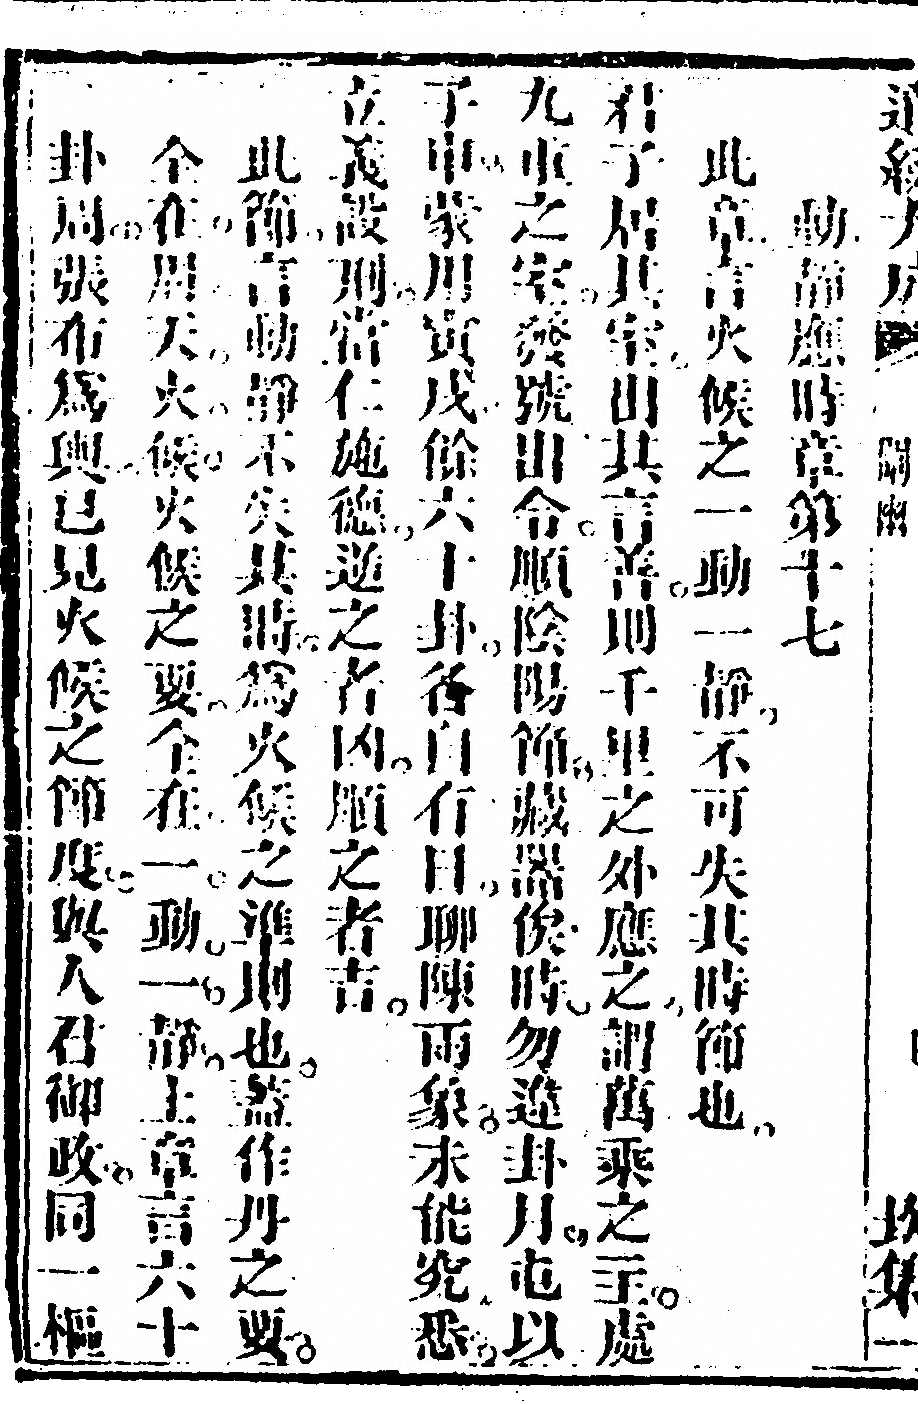 道統大成　闡幽　坎集一
動靜應時章第十七
此章言火候之一動一靜不可失其時節也
君子居其室出其言善則千里之外應之謂萬乘之主處
九重之室發號出令順陰陽節藏器俟時勿違卦月屯以
子申蒙用寅戌餘六十卦各自有日聊陳兩象未能究悉
立義設刑當仁施德逆之者凶順之者吉
此節言動靜不失其時爲火候之準則也蓋作丹之要
全在周天火候火候之要全在一動一靜上章言六十
卦周張布爲輿已見火候之節度與人君御政同一樞